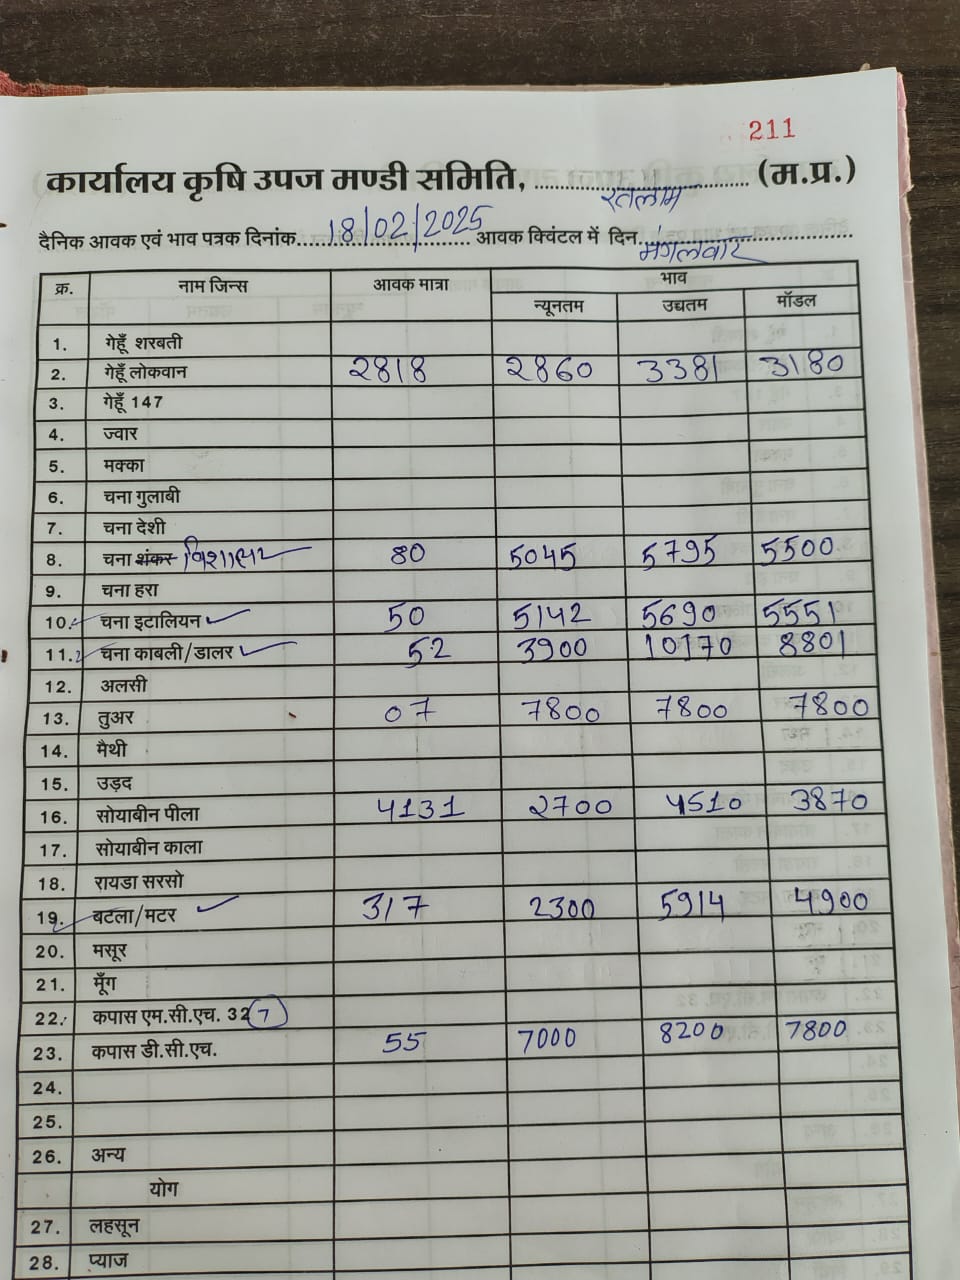 211
कार्यालय कृषि उपज मण्डी समिति, रतलाम (म.प्र.)
दैनिक आवक एवं भाव पत्रक दिनांक 18/02/2025 आवक क्विंटल में दिन मंगलवार
क्र. नाम जिन्स आवक मात्रा भाव
न्यूनतम उद्यतम मॉडल
1. गेहूँ शरबती
2. गेहूँ लोकवान 2818 2860 3381 3180
3. गेहूँ 147
4. ज्वार
5. मक्का
6. चना गुलाबी
7. चना देशी
8. चना शंकर विशाल 80 5045 5795 5500
9. चना हरा
10. चना इटालियन 50 5142 5690 5551
11. चना काबली/डालर 52 3900 10170 8801
12. अलसी
13. तुअर 07 7800 7800 7800
14. मैथी
15. उड़द
16. सोयाबीन पीला 4131 2700 4510 3870
17. सोयाबीन काला
18. रायडा सरसो
19. बटला/मटर 317 2300 5914 4900
20. मसूर
21. मूँग
22. कपास एम.सी.एच. 32 7
23. कपास डी.सी.एच. 55 7000 8200 7800
24.
25.
26. अन्य
योग
27. लहसून
28. प्याज